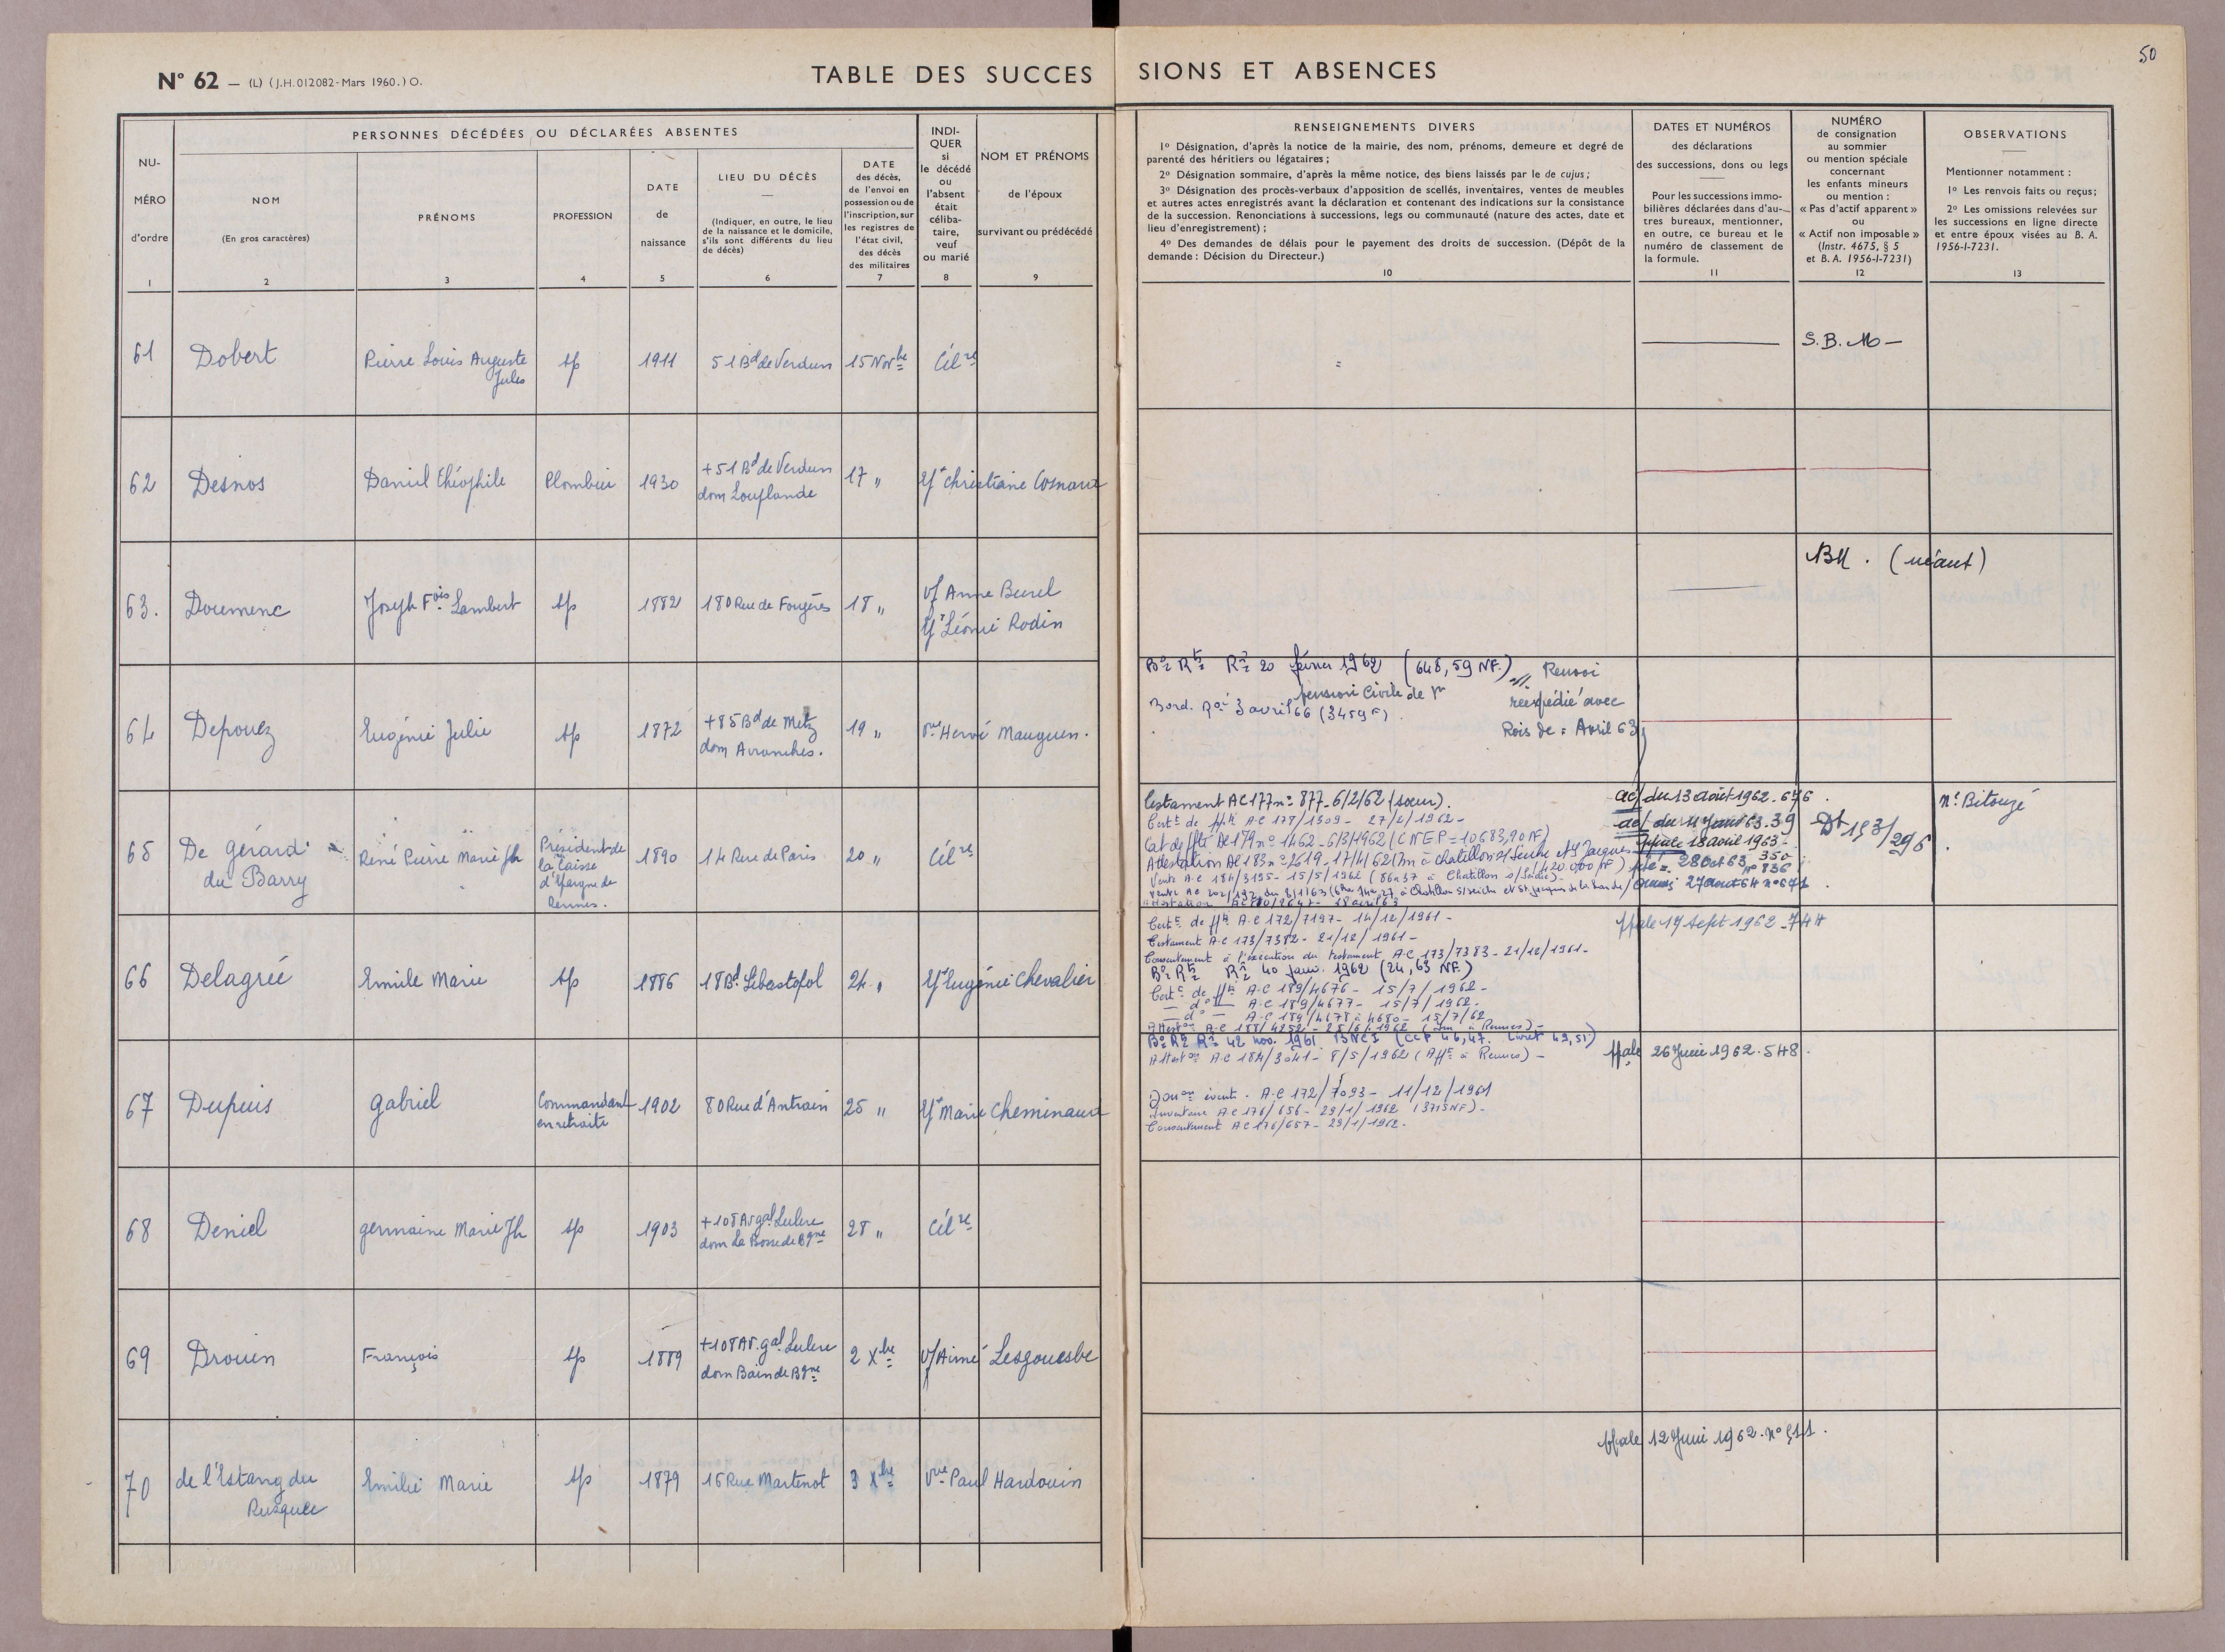 50
N° 62 — (L) (J.H. 012082 - Mars 1960.) O.
TABLE DES SUCCESSIONS ET ABSENCES
NU-
MÉRO
d'ordre
1
PERSONNES DÉCÉDÉES OU DÉCLARÉES ABSENTES
NOM
(En gros caractères)
2
PRÉNOMS
3
PROFESSION
4
DATE
de
naissance
5
LIEU DU DÉCÈS
(Indiquer, en outre, le lieu
de la naissance et le domicile,
s'ils sont différents du lieu
de décès)
6
DATE
des décès,
de l'envoi en
possession ou de
l'inscription, sur
les registres de
l'état civil,
des décès
des militaires
7
INDI-
QUER
si
le décédé
ou
l'absent
était
céliba-
taire,
veuf
ou marié
8
NOM ET PRÉNOMS
de l'époux
survivant ou prédécédé
9
RENSEIGNEMENTS DIVERS
1º Désignation, d'après la notice de la mairie, des nom, prénoms, demeure et degré de
parenté des héritiers ou légataires ;
2º Désignation sommaire, d'après la même notice, des biens laissés par le de cujus ;
3º Désignation des procès-verbaux d'apposition de scellés, inventaires, ventes de meubles
et autres actes enregistrés avant la déclaration et contenant des indications sur la consistance
de la succession. Renonciations à successions, legs ou communauté (nature des actes, date et
lieu d'enregistrement) ;
4º Des demandes de délais pour le payement des droits de succession. (Dépôt de la
demande : Décision du Directeur.)
10
DATES ET NUMÉROS
des déclarations
des successions, dons ou legs
Pour les successions immo-
bilières déclarées dans d'au-
tres bureaux, mentionner,
en outre, ce bureau et le
numéro de classement de
la formule.
11
NUMÉRO
de consignation
au sommier
ou mention spéciale
concernant
les enfants mineurs
ou mention :
« Pas d'actif apparent »
ou
« Actif non imposable »
(Instr. 4675, § 5
et B.A. 1956-I-7231)
12
OBSERVATIONS
Mentionner notamment :
1º Les renvois faits ou reçus ;
2º Les omissions relevées sur
les successions en ligne directe
et entre époux visées au B. A.
1956-I-7231.
13
61 Dobert Pierre Louis Auguste Jules sp 1911 51 Bd de Verdun 15 Novbe Célre
S.B. M —
62 Desnos Daniel Théophile Plombier 1930 +51 Bd de Verdun
dom Louplande 17 " Christiane
63. Doumenc Joseph Fois Lambert sp 1882 180 Rue de Fougères 18 " Vf Anne Burel
Léonie Rodin
(néant)
64 Depouez Eugénie Julie sp 1872 +85 Bd de Metz
dom Avranches. 19 " Vve Hervé Mauguen.
20 février 1962 (648,59 NF.) Renvoi
pension Civile de
réexpédié avec
Bord. 3 avril 66 (3459 F).
Rois de : Avril 63
65 De Gérard
du Barry René Pierre Marie Jh Président de
la Caisse
d'Epargne de
Rennes. 1890 14 Rue de Paris 20 " Célre
Testament AC 177 n° 877 - 6/2/62 (soeur).
Certt de ppté A.C 178/1309 - 27/2/1962 -
179 n° 1462 - 6/3/1962 (CNEP = 10683,90 NF)
Attestation AC 183 n° 2619 - 17/4/62
Vente A.C 184/3195 - 15/5/1962
du 13 août 1962. 676.
18 avril 1963
350
28 Oct 63 n° 836
27 août 64 n° 671.
Dt 193/296
n. Bitouzé
66 Delagrée Emile Marie sp 1886 18 Bd Sébastopol 24 " Eugénie Chevalier
Certt de ppté A.C 172/7197 - 14/12/1961 -
Testament A.C 173/7382 - 21/12/1961 -
Consentement à l'exécution du testament A.C 173/7383 - 21/12/1961 -
40 janv. 1962 (24,63 NF.)
Certt de ppté A.C 189/4676 - 15/7/1962 -
— d° — A.C 189/4677 - 15/7/1962 -
— d° — A.C 189/4678 à 4680 - 15/7/62
A.C 188/4252 -
ppale 17 Sept 1962 - 744
67 Dupuis Gabriel Commandant
en retraite 1902 80 Rue d'Antrain 25 " Marie Cheminaux
42 nov. 1961 BNCI (CCP 46,47. Livret 49,51)
Attestn A.C 184/3041 - 8/5/1962 (Afft à Rennes) -
évent. - A.C 172/7093 - 11/12/1961
Inventaire A.C 176/656 - 29/1/1962 (3715 NF) -
Consentement A.C 176/657 - 29/1/1962 -
ppale 26 Juin 1962. 548.
68 Deniel Germaine Marie Jh sp 1903 +108 Av gal Leclerc
dom La Bosse de Bgne 28 " Célre
69 Drouin François sp 1889 +108 Av. gal Leclerc
dom Bain de Bgne 2 Xbre Vf Aimé Lesgouesbe
70 de l'Estang du
Rusquec Emilie Marie sp 1879 16 Rue Martenot 3 Xbre Vve Paul Hardouin
ppale 12 Juin 1962. n° 511.